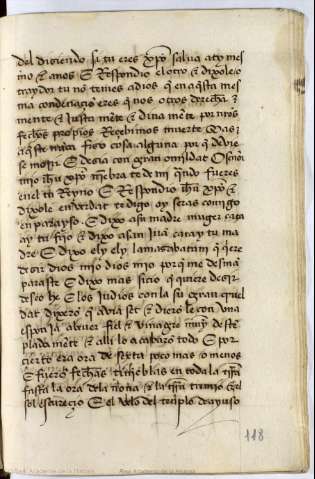 del diziendo si tu eres xpo salua aty mes
mo & anos & Respondio el otro & dixole o
traydor tu no temes a dios q en aquesta mes
ma condenaçio eres q nos otros derecha
mente & Justa mēte & dina mēte por nros
fechos propios Reçebimos muerte mas
aqueste nunca fizo cosa alguna por q deuie
se morir & dezia con gran omildat O señor
mio ihu xpo miēbra te de mi qndo fueres
en el tu Reyno & Respondio ihu xpo &
dixole en verdat te digo oy seras comigo
en parayso & dixo asu madre muger cata
ay tu fijo & dixo a san iuā catay tu ma
dre & dixo ely ely lamazabatani q qere
dezir dios mio dios mio por q me desma
paraste & dixo mas sicio q quiere dezir
deseo he & los iudios con la su gran cruel
dat dixero q auia set & diero le con vna
esponja abeuer fiel & vinagre muy deste
plada mēte & alli lo acabaro todo & por
çierto era ora de sexta poco mas o menos
& fuero fechas tinieblas en toda la trra
fasta la ora de la nona & la trra tremio & el
sol escureçio & el velo del templo de ayuso
118
Real Academia de la Historia